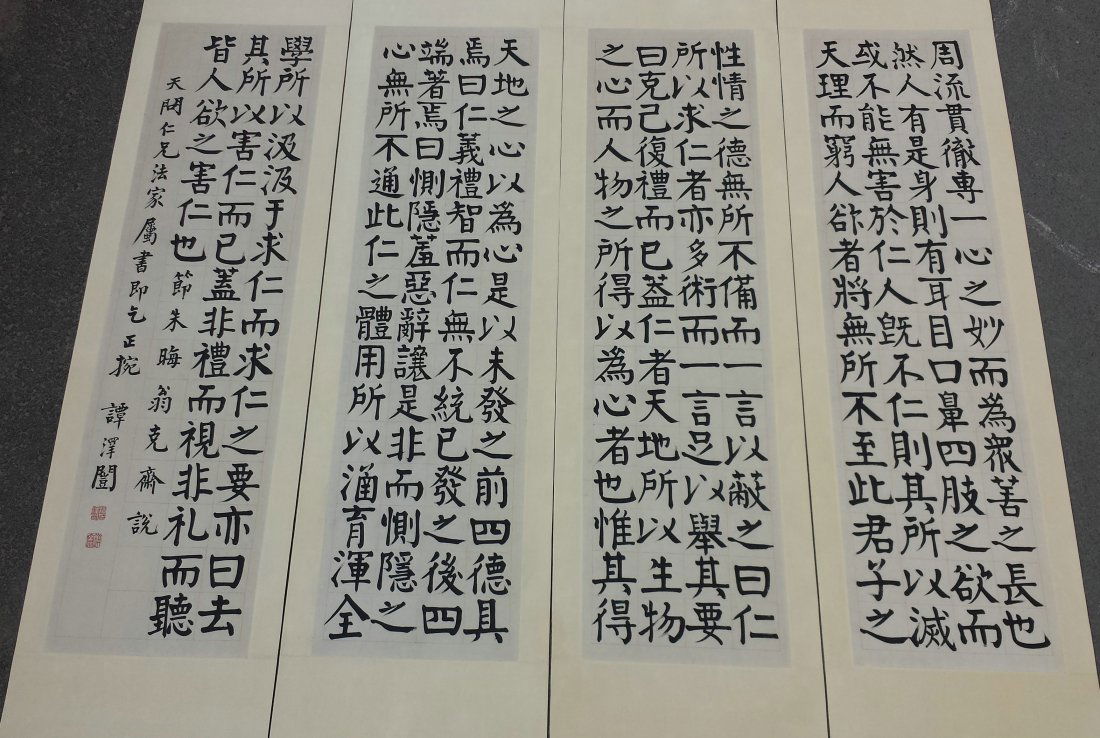 周流貫徹專一心之妙而為眾善之長也
然人有是身則有耳目口鼻四肢之欲而
或不能無害於仁人既不仁則其所以滅
天理而窮人欲者將無所不至此君子之
性情之德無所不備而一言以蔽之曰仁
所以求仁者亦多術而一言足以舉其要
曰克己復禮而已蓋仁者天地所以生物
之心而人物之所得以為心者也惟其得
天地之心以為心是以未發之前四德具
焉曰仁義禮智而仁無不統已發之後四
端著焉曰惻隱羞惡辭讓是非而惻隱之
心無所不通此仁之體用所以涵育渾全
學所以汲汲于求仁而求仁之要亦曰去
其所以害仁而已蓋非禮而視非礼而聽
皆人欲之害仁也 節朱晦翁克齋說
天仁兄法家屬書即乞正捥 譚澤闓